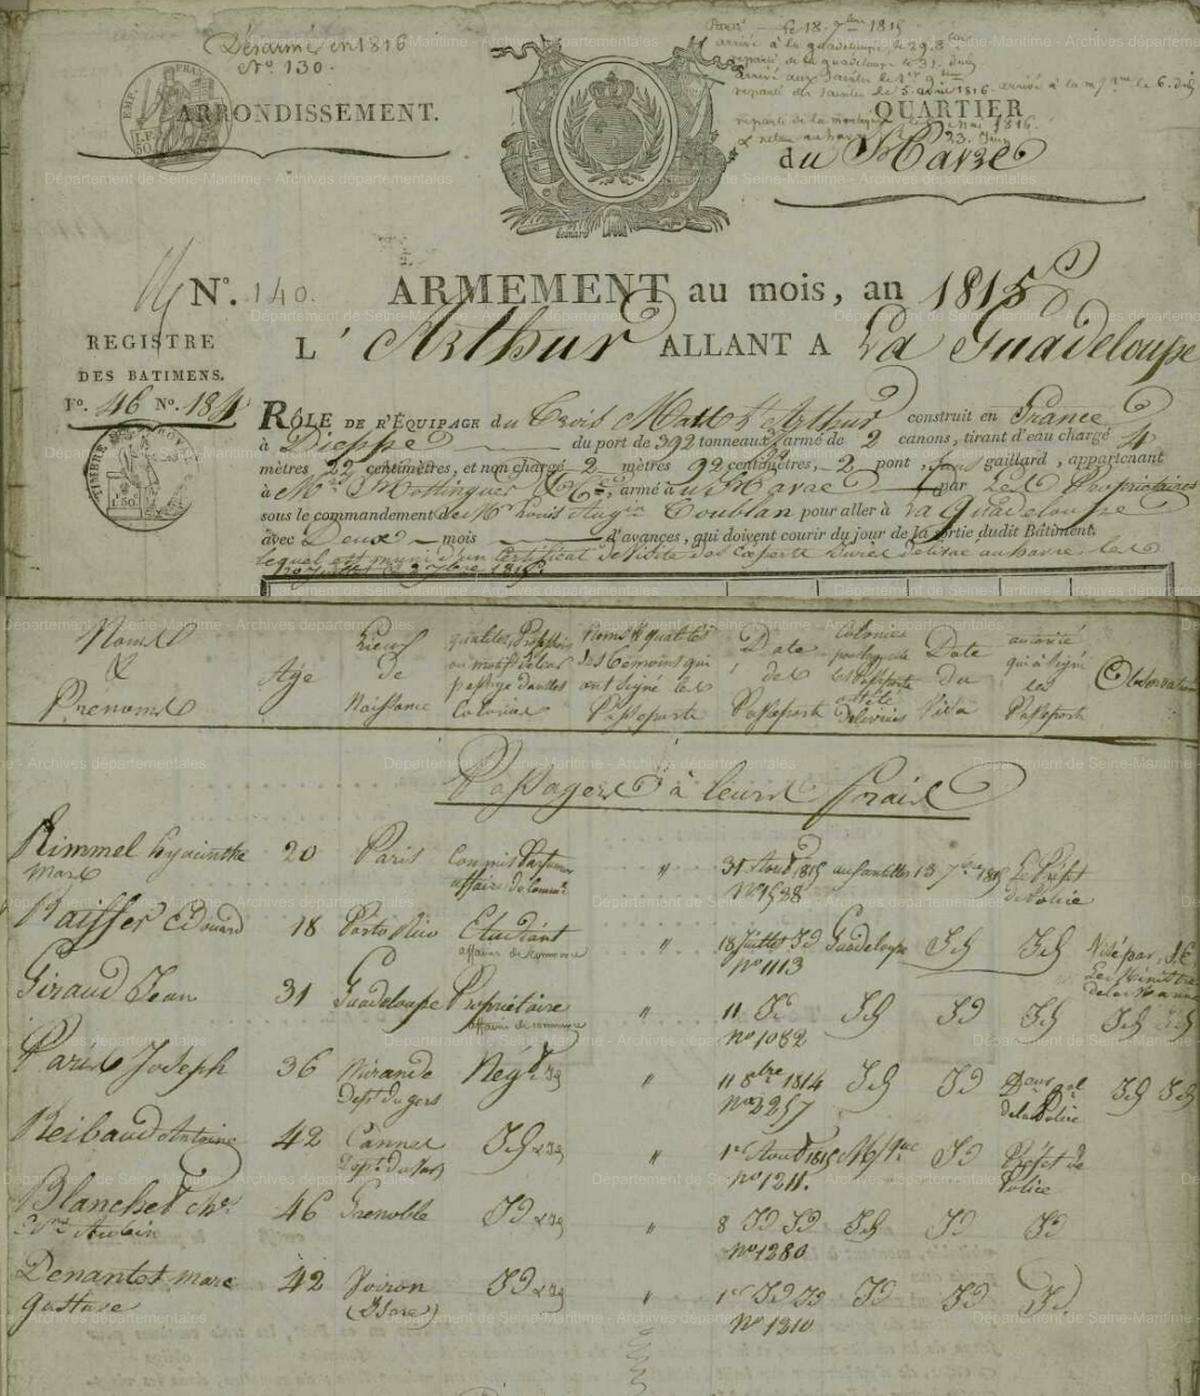 Désarmé en 1816
N° 130.
ARRONDISSEMENT.
le 18. 7bre 1815
arrivé à la guadeloupe le 29. 8bre
reparti de la guadeloupe le 31. dudit
arrivé aux Saintes le 1er 9bre
reparti des Saintes le 5. avril 1816. arrivé à la mque le 6. dudit
reparti de la martinique mai 1816.
& retour au havre 23. Juin
QUARTIER
du Havre
N°. 140.
ARMEMENT au mois, an 1815
REGISTRE
DES BATIMENS.
F°. 46 N°. 184
L' Arthur ALLANT A La Guadeloupe
RÔLE DE R'ÉQUIPAGE du Trois Matts L'Arthur construit en France
à Dieppe du port de 392 tonneaux, armé de 2 canons, tirant d'eau chargé 4
mètres 22 centimètres, et non chargé 2 mètres 92 centimètres, 2 pont, sans gaillard, appartenant
à Mrs Hottinguer & Cie, armé au Havre par les Propriétaires
sous le commandement de Mr Louis Augtin Toublan pour aller à La Guadeloupe
avec Deux mois d'avances, qui doivent courir du jour de la sortie dudit Bâtiment.
lequel est muni d'un Certificat de Visite des Experts Jurés délivré au havre le
Noms & Prénoms
Age
Lieux de Naissance
qualités, Professions ou motifs de leur passage dans les Colonies
Noms & qualités des témoins qui ont signé les Passeports
Date des Passeports
Colonies pour lesquelles les Passeports ont été délivrés
Date du Visa
autorité qui a signé les Passeports
Observations
Passagers à leurs fraix
Rimmel hyacinthe 20 Paris Commis Parfumeur " 31 Aout 1815 aux antilles 13 7bre 1815 Le Préfet
Marc affaires de Commce N° 1528 de Police
Raiffer Edouard 18 Porto Rico Etudiant " 18 Juillet Id Guadeloupe Id Id Visé par S.E.
affaires de Commerce N° 1113 Le Ministre
de la Marine
Giraud Jean 31 Guadeloupe Propriétaire " 11 Id Id Id Id Id Id
affaires de commerce N° 1082
Paris Joseph 36 Mirande Négt & Id " 11 8bre 1814 Id Id Id Id
Dept du gers N° 2257 de la Police
Reibaud Antoine 42 Cannes Id & Id " 1er Aout 1815 Mque Id Préfet de
Dept du Var N° 1211. Police
Blanchet chs 46 Grenoble Id & Id " 8 Id Id Id Id Id
Aubin N° 1280
Denantes marc 42 Voiron Id & Id " 1er Id Id Id Id Id
Gustave (Isère) N° 1210